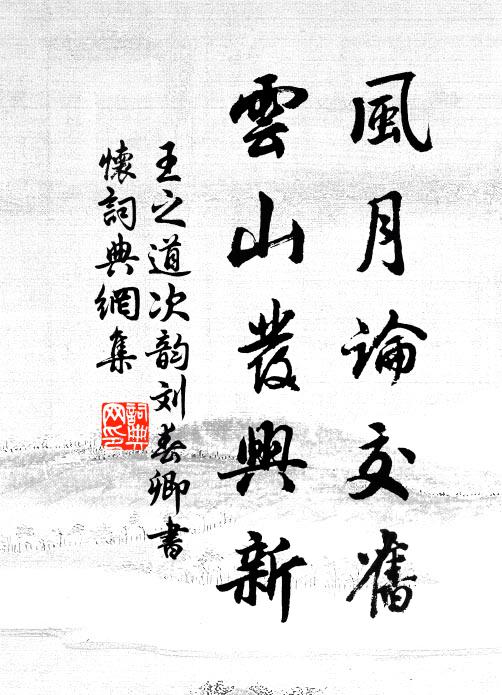 風月論交舊
雲山發興新
王之道次韵刘春卿書
懷詞典網集
詞典网印